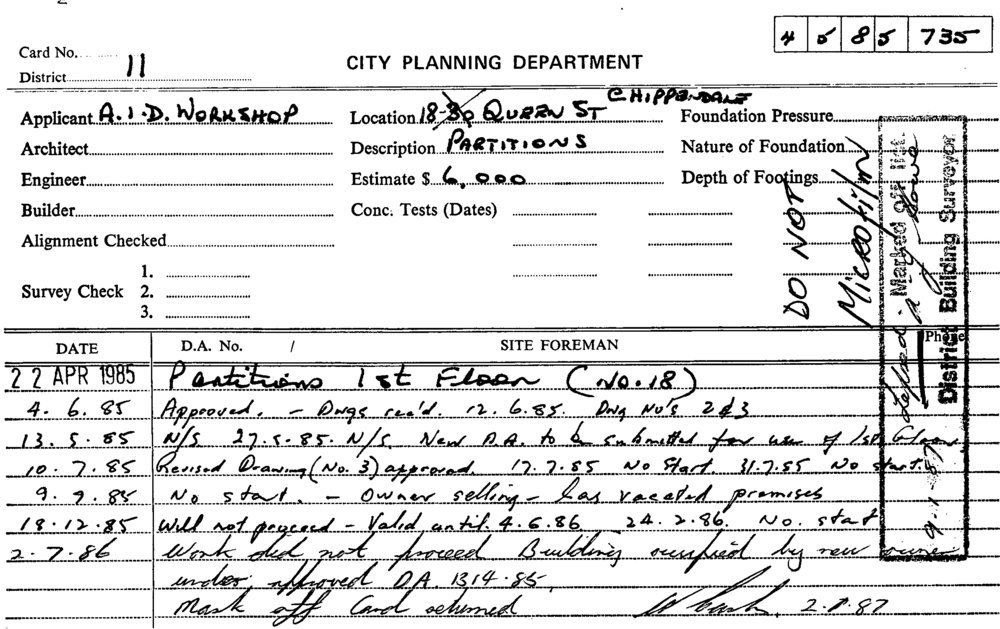 4 5 85 735
Card No.
District 11
CITY PLANNING DEPARTMENT
Applicant A.I.D. WORKSHOP
Location 18-30 QUEEN ST CHIPPENDALE
Foundation Pressure
Architect
Description PARTITIONS
Nature of Foundation
Engineer
Estimate $ 6,000
Depth of Footings
Builder
Conc. Tests (Dates)
Alignment Checked
Survey Check
1.
2.
3.
DO NOT
MICROFILM
Marked off list.
District Building Surveyor
9.1.87
DATE D.A. No. / SITE FOREMAN Phone
22 APR 1985 Partitions 1st Floor (No.18)
4.6.85 Approved. - Dwgs rec'd. 12.6.85. Dwg No's 2 & 3
13.5.85 N/S 27.5.85. N/S. New D.A. to be submitted for use of 1st Floor
10.7.85 Revised Drawing (No. 3) approved. 17.7.85 No Start. 31.7.85 No start.
9.9.85 No start. - Owner selling - has vacated premises
18.12.85 Will not proceed - Valid until 4.6.86 24.2.86. No. start
2.7.86 Work did not proceed Building occupied by new owner
under approved D.A. 1314.85.
Mark off Card returned